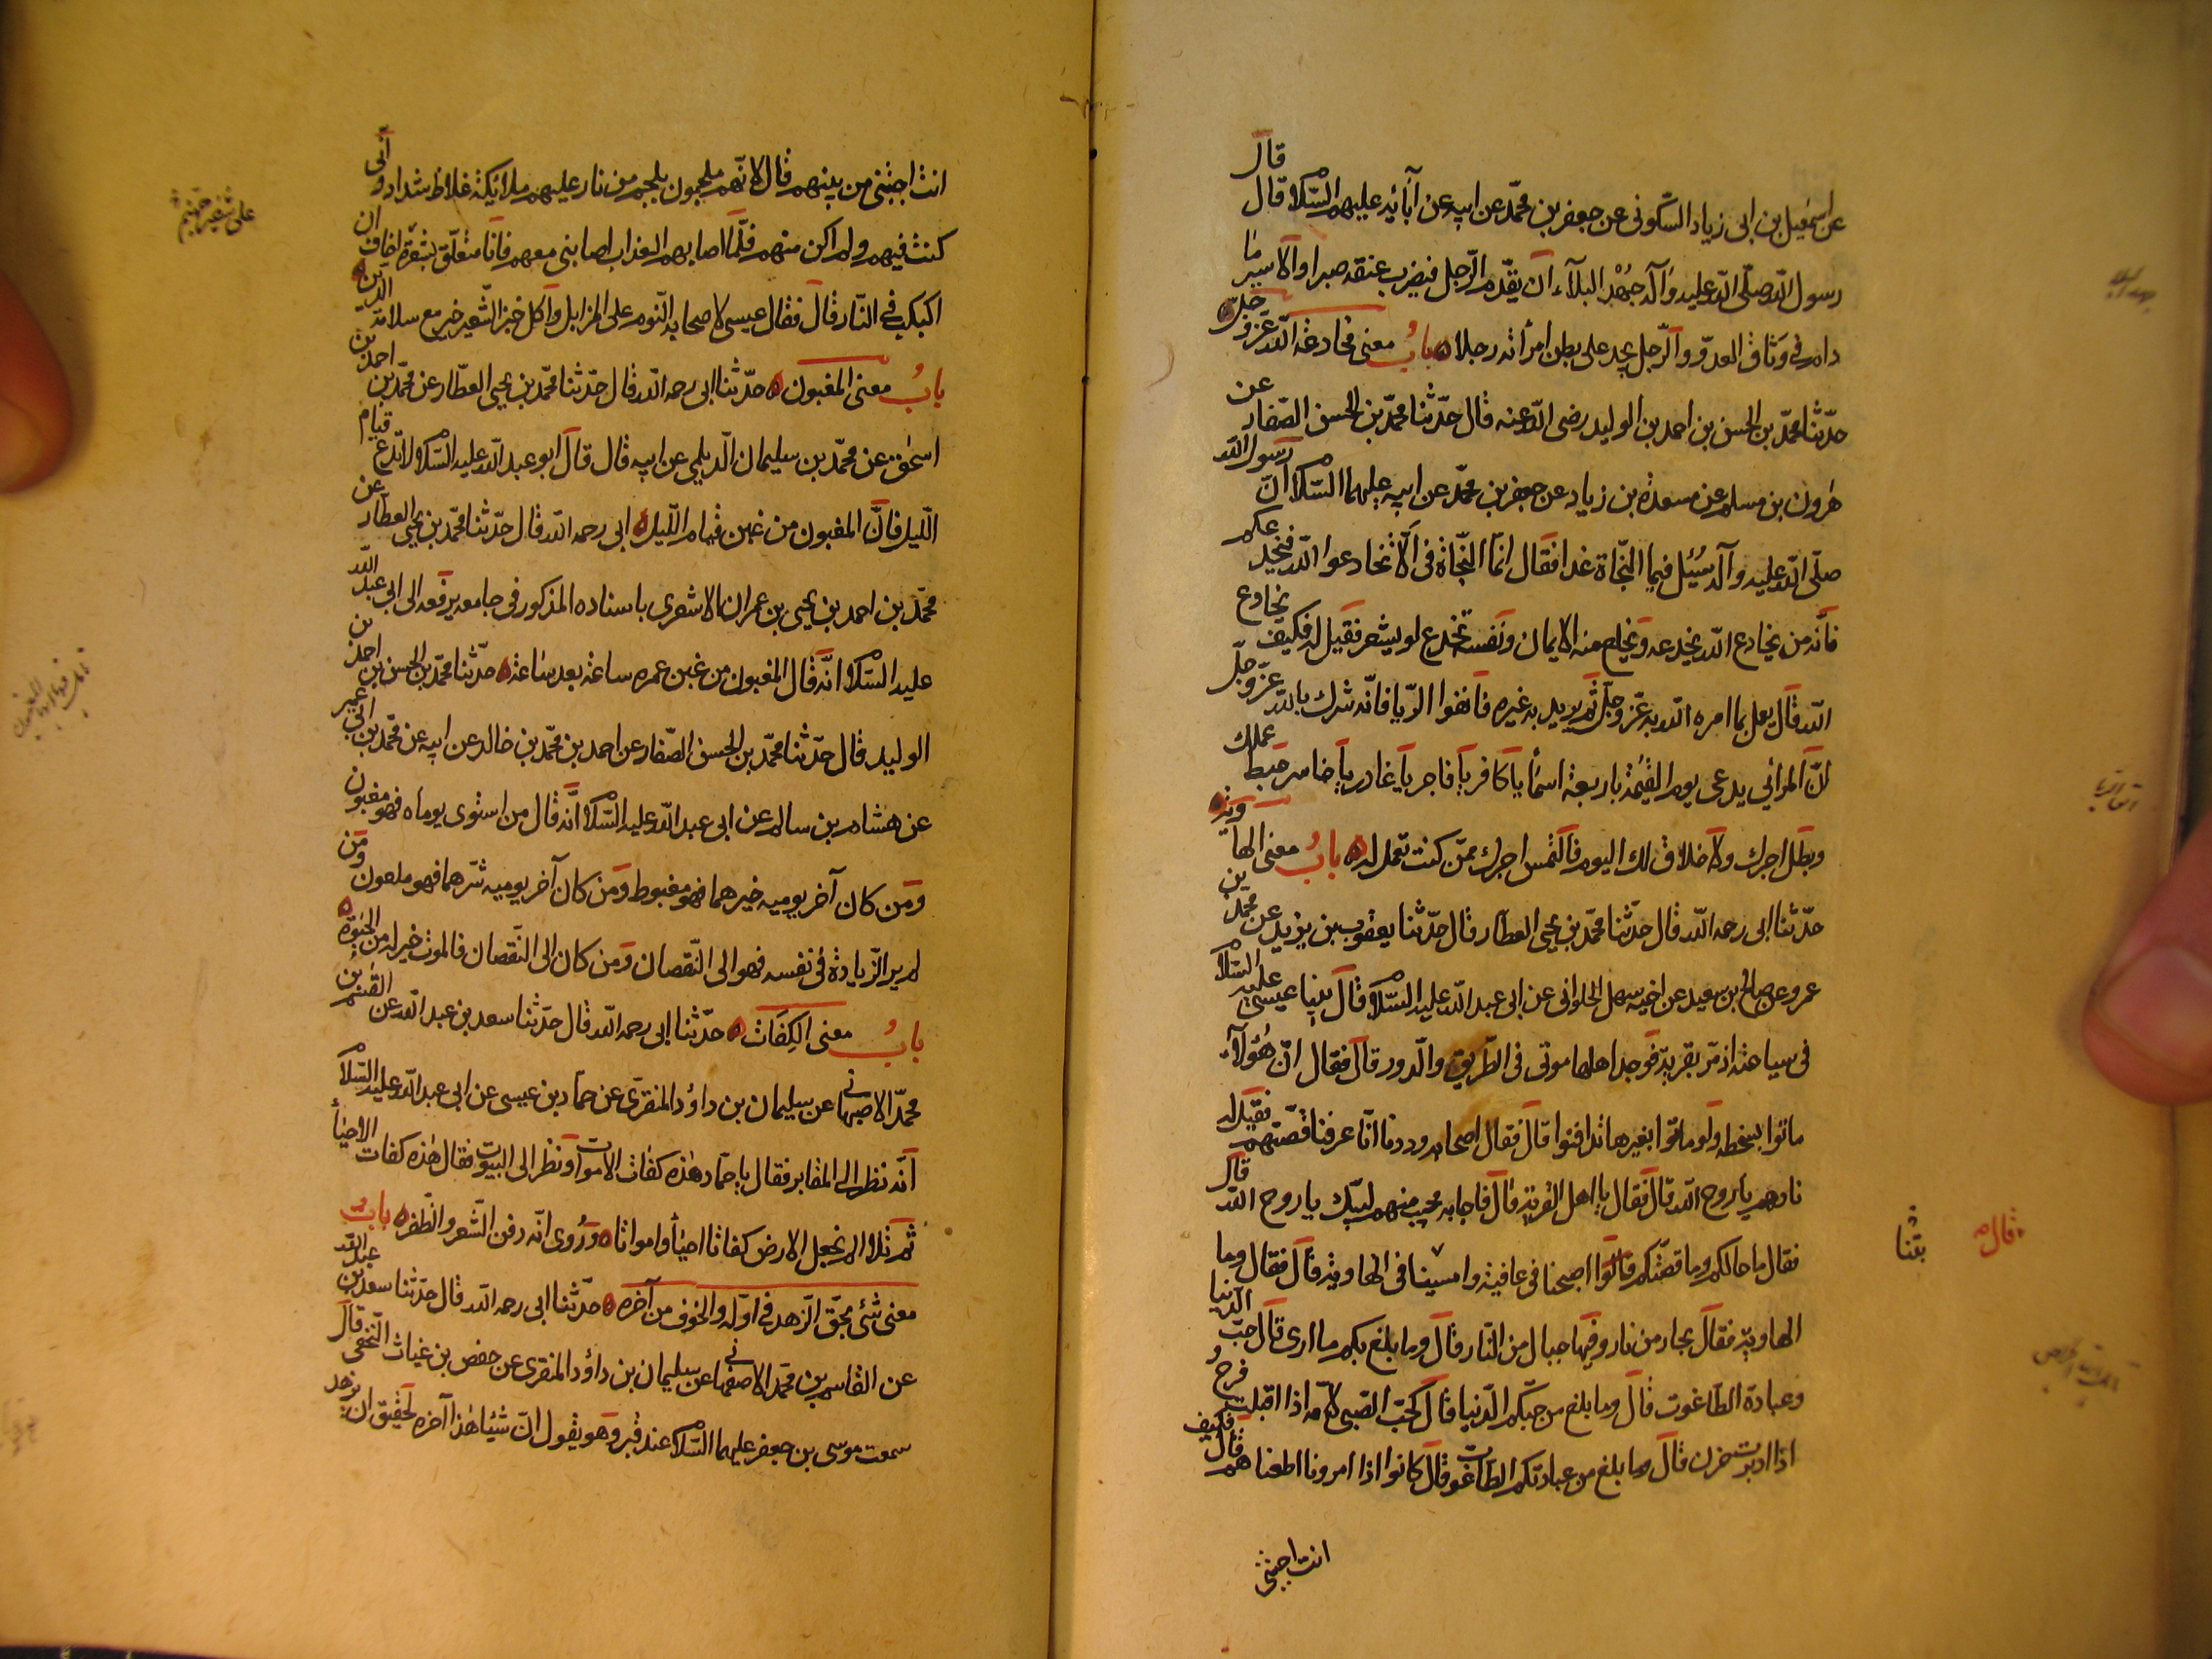 عن اسمعيل بن ابى زياد السكونى عن جعفر بن محمد عن ابيه عن آبائه عليهم السلام قال قال
رسول الله صلى الله عليه وآله جهد البلاء ان يقدم الرجل فيضرب عنقه صبرا والاسير ما
دام فى وثاق العدو والرجل يجد على بطن امرأته رجلا باب معنى مخادعة الله عز وجل
حدثنا محمد بن الحسن بن احمد بن الوليد رضى الله عنه قال حدثنا محمد بن الحسن الصفار عن
هرون بن مسلم عن مسعدة بن زياد عن جعفر بن محمد عن ابيه عليهما السلام ان رسول الله
صلى الله عليه وآله سئل فيما النجاة غدا فقال انما النجاة فى الا تخادعوا الله فيخدعكم
فانه من يخادع الله يخدعه ويخلع منه الايمان ونفسه تخدع لو يشعر فقيل له فكيف يخادع
الله قال يعمل بما امره الله به عز وجل ثم يريد به غيره فاتقوا الريا فانه شرك بالله عز وجل
ان المرائى يدعى يوم القيمة باربعة اسماء يا كافر يا فاجر يا غادر يا خاسر حبط عملك
وبطل اجرك ولا خلاق لك اليوم فالتمس اجرك ممن كنت تعمل له باب معنى الهاوية
حدثنا ابى رحمه الله قال حدثنا محمد بن يحيى العطار قال حدثنا يعقوب بن يزيد عن محمد بن
عمرو عن صالح بن سعيد عن اخيه سهل الحلوانى عن ابى عبد الله عليه السلام قال بينا عيسى عليه السلام
فى سياحته اذ مر بقرية فوجد اهلها موتى فى الطريق والدور قال فقال ان هؤلاء
ماتوا بسخطه ولو ماتوا بغيرها تدافنوا قال فقال اصحابه وددنا انا عرفنا قصتهم فقيل له
نادهم يا روح الله قال فقال يا اهل القرية قال فاجابه مجيب منهم لبيك يا روح الله قال
فقال ما حالكم وما قصتكم قالوا اصبحنا فى عافية وامسينا فى الهاوية قال فقال وما
الهاوية فقال بحار من نار وفيها جبال من النار قال وما بلغ بكم ما ارى قال حب الدنيا
وعبادة الطاغوت قال وما بلغ من حبكم الدنيا قال كحب الصبى لامه اذا اقبلت فرح
اذا ادبرت حزن قال وما بلغ من عبادتكم الطاغوت قال كانوا اذا امرونا اطعناهم قال فكيف
انت اجبتنى
قال
بتنا
انت اجبتنى من بينهم قال لانهم ملجمون بلجم من نار عليهم ملائكة غلاظ شداد وانى
كنت فيهم ولم اكن منهم فلما اصابهم العذاب اصابنى معهم فانا متعلق بشعرة اخاف ان
على شفير جهنم
اكبكب فى النار قال فقال عيسى لاصحابه النوم على المزابل واكل خبز الشعير خير مع سلامة الدين
باب معنى المغبون حدثنا ابى رحمه الله قال حدثنا محمد بن يحيى العطار عن محمد بن احمد بن
اسحق عن محمد بن سليمان الديلمى عن ابيه قال قال ابو عبد الله عليه السلام لا تدع قيام
الليل فان المغبون من غبن قيام الليل ابى رحمه الله قال حدثنا محمد بن يحيى العطار عن
محمد بن احمد بن يحيى بن عمران الاشعرى باسناده المذكور فى جامعه يرفعه الى ابى عبد الله
عليه السلام انه قال المغبون من غبن عمره ساعة بعد ساعة حدثنا محمد بن الحسن بن احمد بن
الوليد قال حدثنا محمد بن الحسن الصفار عن احمد بن محمد بن خالد عن ابيه عن محمد بن ابى عمير
عن هشام بن سالم عن ابى عبد الله عليه السلام انه قال من استوى يوماه فهو مغبون
ومن كان آخر يوميه خيرهما فهو مغبوط ومن كان آخر يوميه شرهما فهو ملعون ومن
لم ير الزيادة فى نفسه فهو الى النقصان ومن كان الى النقصان فالموت خير له من الحيوة
باب معنى الكفات حدثنا ابى رحمه الله قال حدثنا سعد بن عبد الله عن القسم بن
محمد الاصبهانى عن سليمان بن داود المنقرى عن حماد بن عيسى عن ابى عبد الله عليه السلام
انه نظر الى المقابر فقال يا حماد هذه كفات الاموات ونظر الى البيوت فقال هذه كفات الاحياء
ثم تلا الم نجعل الارض كفاتا احياء وامواتا وروى انه دفن الشعر والظفر باب
معنى شئ يحق الزهد فى اوله والخوف من آخره حدثنا ابى رحمه الله قال حدثنا سعد بن عبد الله
عن القاسم بن محمد الاصفهانى عن سليمان بن داود المنقرى عن حفص بن غياث النخعى قال
سمعت موسى بن جعفر عليهما السلام عند قبر وهو يقول ان شيئا هذا آخره لحقيق ان يزهد